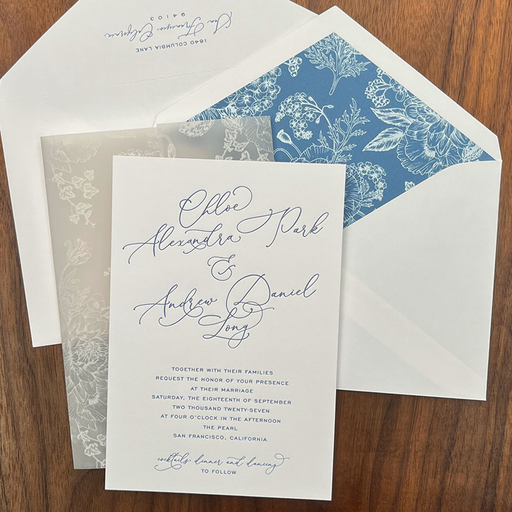 1640 COLUMBIA LANE
San Francisco California
94103
Chloe
Alexandra Park
&
Andrew Daniel
Long
TOGETHER WITH THEIR FAMILIES
REQUEST THE HONOR OF YOUR PRESENCE
AT THEIR MARRIAGE
SATURDAY, THE EIGHTEENTH OF SEPTEMBER
TWO THOUSAND TWENTY-SEVEN
AT FOUR O'CLOCK IN THE AFTERNOON
THE PEARL
SAN FRANCISCO, CALIFORNIA
cocktails dinner and dancing
TO FOLLOW